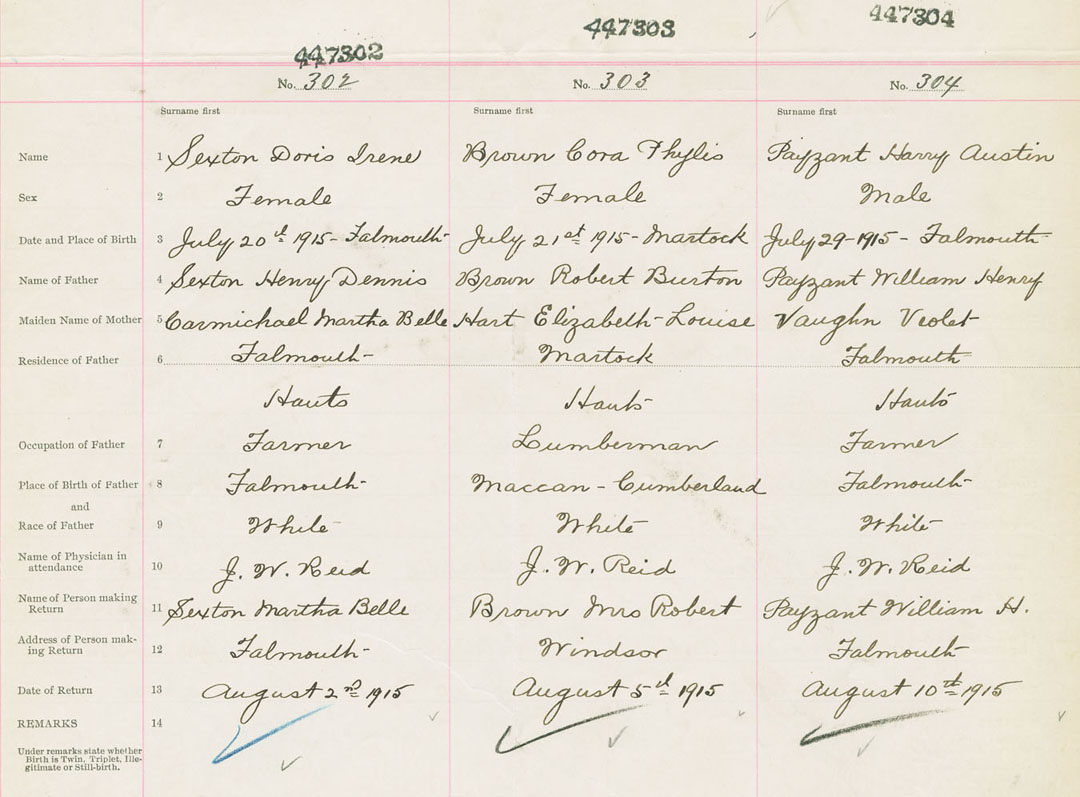 447302 447303 447304
No. 302 No. 303 No. 304
Surname first Surname first Surname first
Name 1 Sexton Doris Irene Brown Cora Phylis Payzant Harry Austin
Sex 2 Female Female Male
Date and Place of Birth 3 July 20th 1915 - Falmouth July 21st 1915 - Martock July 29 - 1915 - Falmouth
Name of Father 4 Sexton Henry Dennis Brown Robert Burton Payzant William Henry
Maiden Name of Mother 5 Carmichael Martha Belle Hart Elizabeth Louise Vaughn Veolet
Residence of Father 6 Falmouth Martock Falmouth
Hants Hants Hants
Occupation of Father 7 Farmer Lumberman Farmer
Place of Birth of Father 8 Falmouth Maccan - Cumberland Falmouth
and
Race of Father 9 White White White
Name of Physician in
attendance 10 J. W. Reid J. W. Reid J. W. Reid
Name of Person making
Return 11 Sexton Martha Belle Brown Mrs Robert Payzant William H.
Address of Person mak-
ing Return 12 Falmouth Windsor Falmouth
Date of Return 13 August 2nd 1915 August 5th 1915 August 10th 1915
REMARKS 14
Under remarks state whether
Birth is Twin, Triplet, Ille-
gitimate or Still-birth.